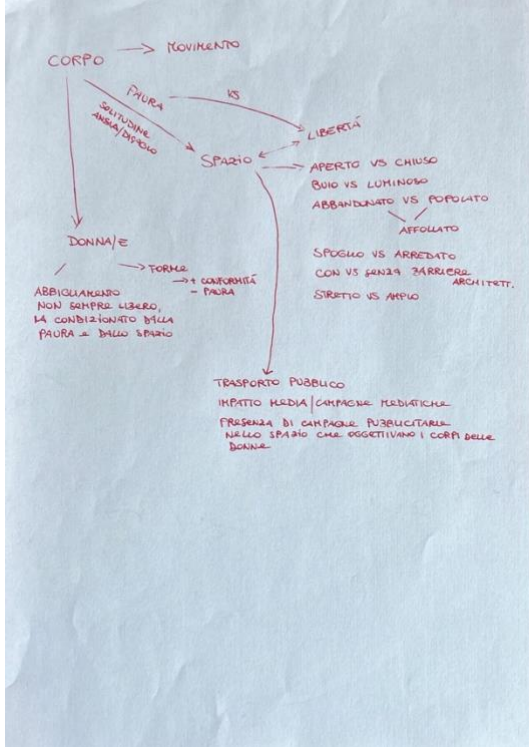 CORPO → MOVIMENTO
PAURA VS LIBERTÁ
SOLITUDINE
ANSIA/DISAGIO
SPAZIO → APERTO VS CHIUSO
BUIO VS LUMINOSO
ABBANDONATO VS POPOLATO
AFFOLLATO
SPOGLIO VS ARREDATO
CON VS SENZA BARRIERE
ARCHITETT.
STRETTO VS AMPIO
DONNA/E
→ FORME
→ + CONFORMITÁ
- PAURA
ABBIGLIAMENTO
NON SEMPRE LIBERO,
MA CONDIZIONATO DALLA
PAURA E DALLO SPAZIO
TRASPORTO PUBBLICO
IMPATTO MEDIA/CAMPAGNE MEDIATICHE
PRESENZA DI CAMPAGNE PUBBLICITARIE
NELLO SPAZIO CHE OGGETTIVANO I CORPI DELLE
DONNE